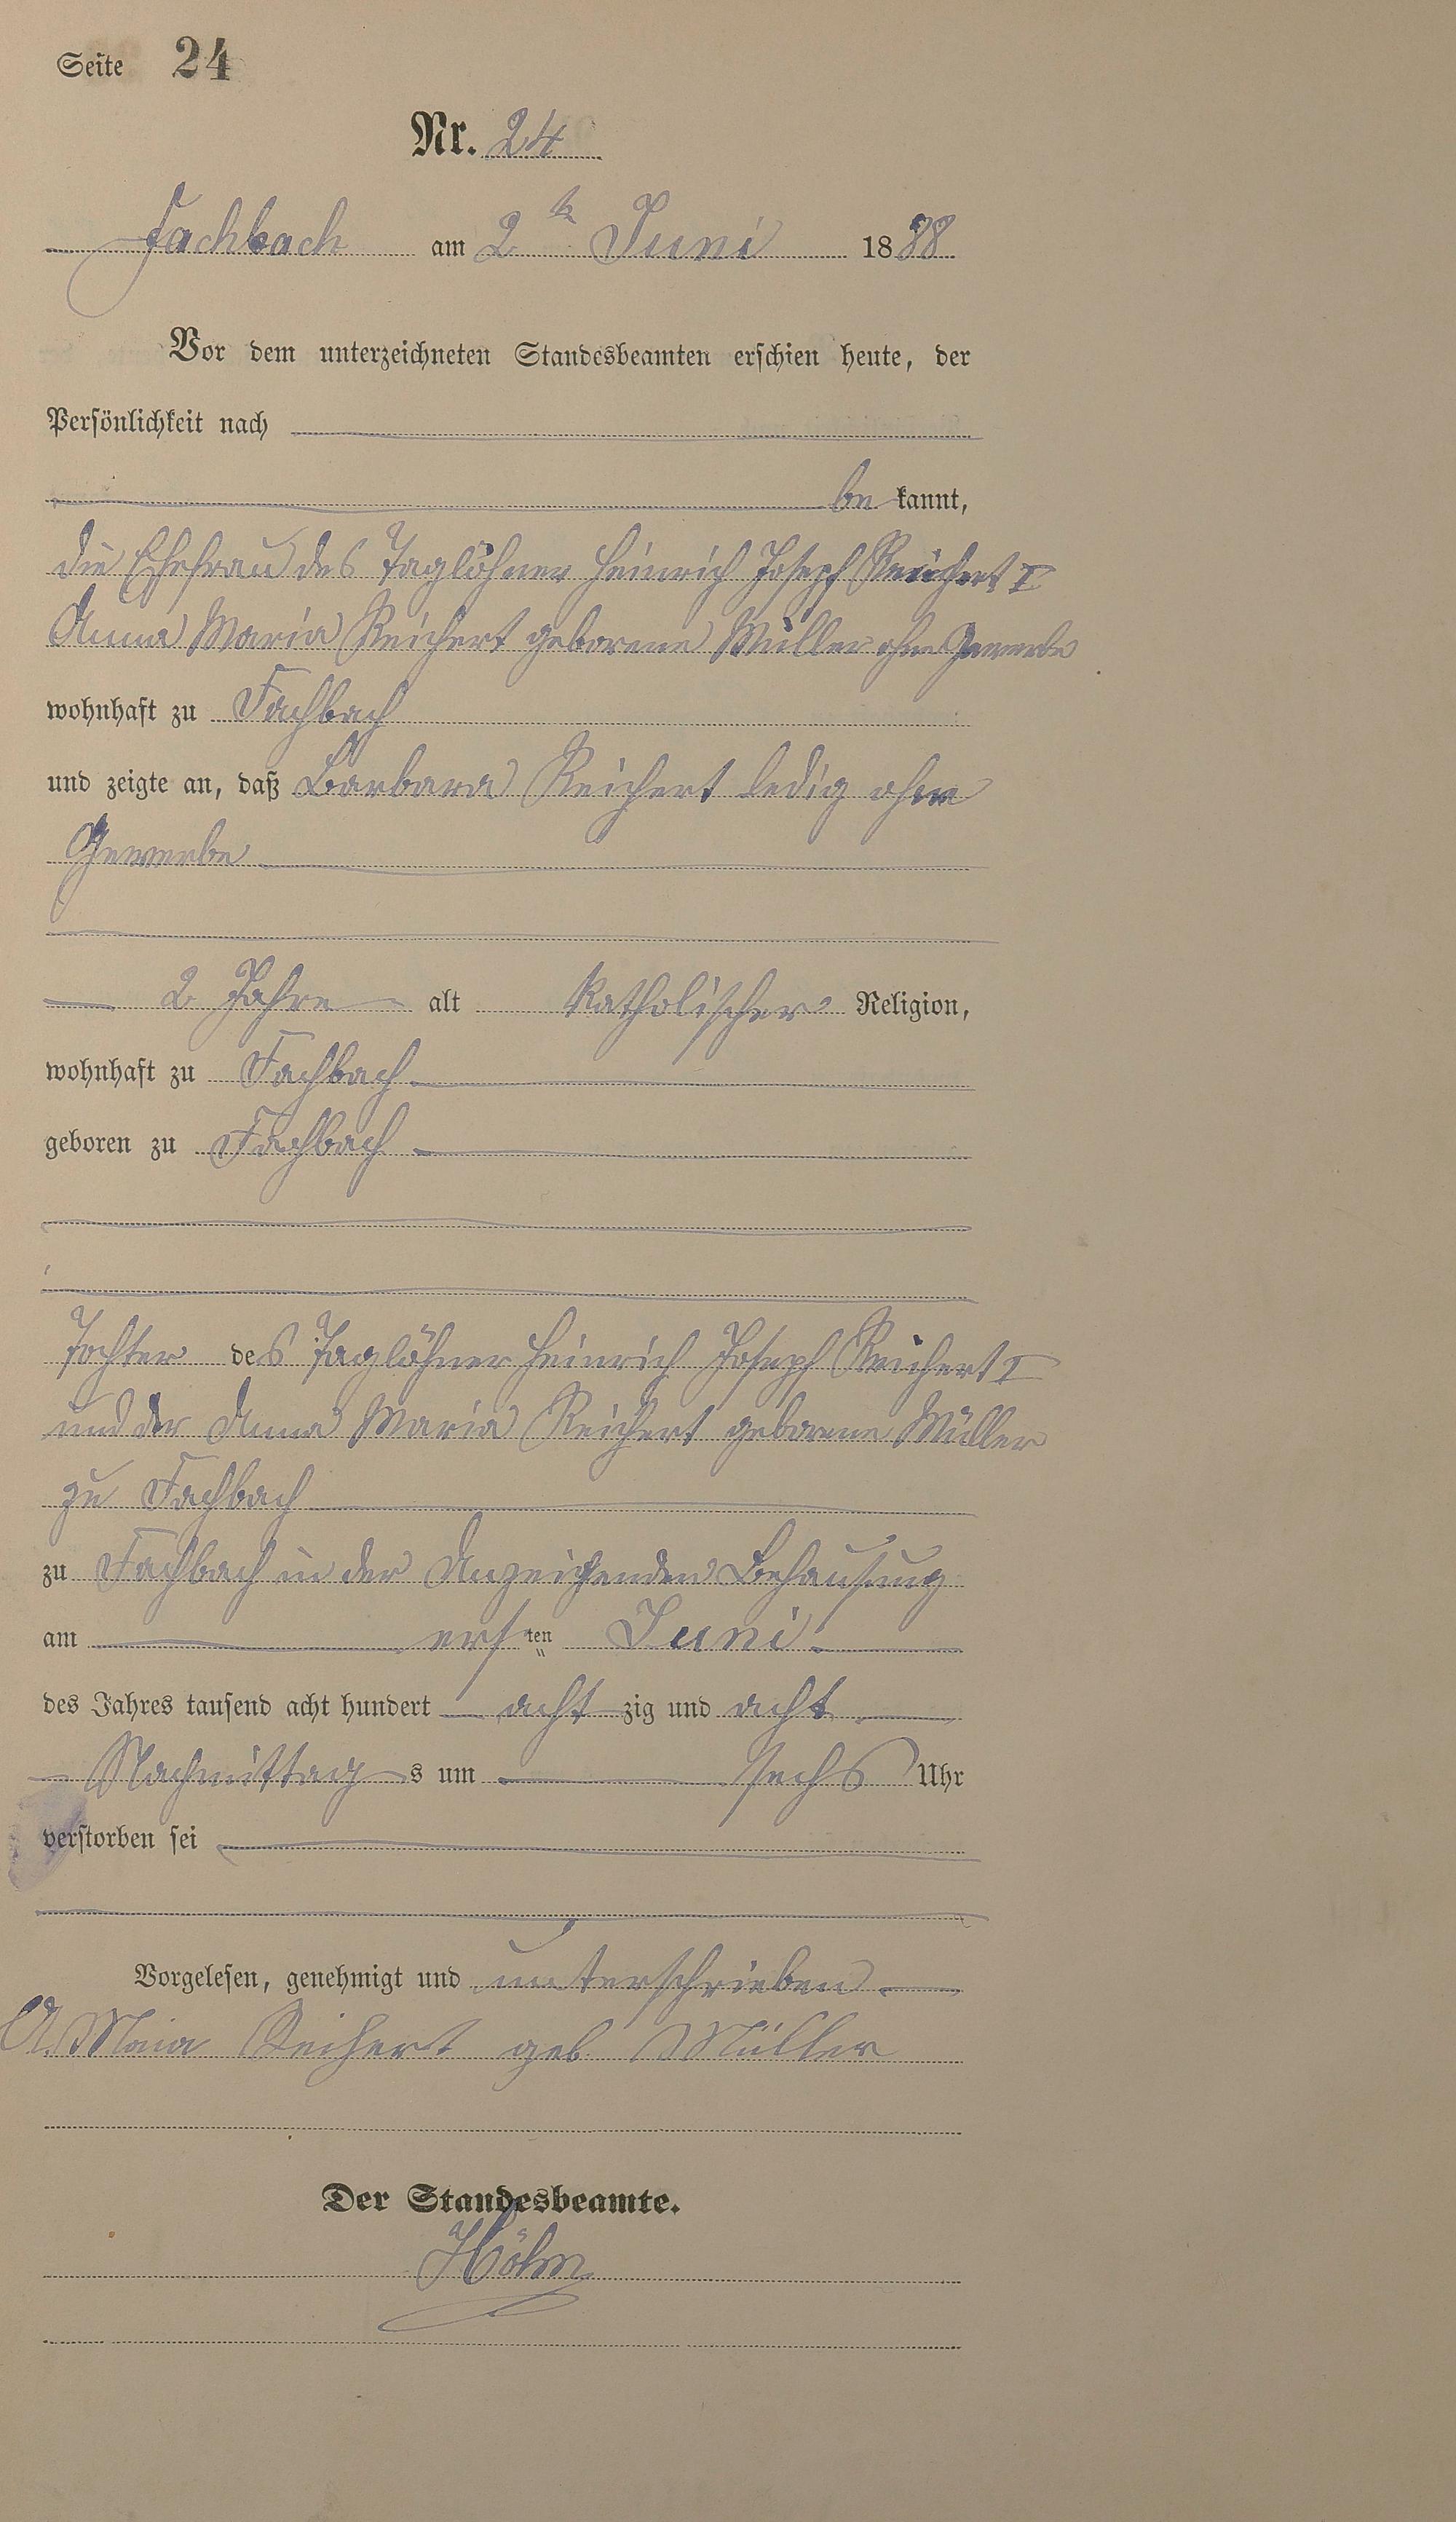 Seite 24
Nr. 24
Fachbach am 2ten Juni 1888
Vor dem unterzeichneten Standesbeamten erschien heute, der
Persönlichkeit nach
be kannt,
die Ehefrau des Taglöhner Heinrich Joseph Reichert I
Anna Maria Reichert geborene Müller ohne Gewerbe
wohnhaft zu Fachbach
und zeigte an, daß Barbara Reichert ledig ohne
Gewerbe
2 Jahre alt Katholischer Religion,
wohnhaft zu Fachbach
geboren zu Fachbach
Tochter des Taglöhner Heinrich Joseph Reichert I
und der Anna Maria Reichert geborene Müller
zu Fachbach
zu Fachbach in der Anzeigenden Behausung
am ersten Juni
des Jahres tausend acht hundert acht zig und acht
Nachmittags um sechs Uhr
verstorben sei
Vorgelesen, genehmigt und unterschrieben
A. Maia Reihert geb. Müller
Der Standesbeamte.